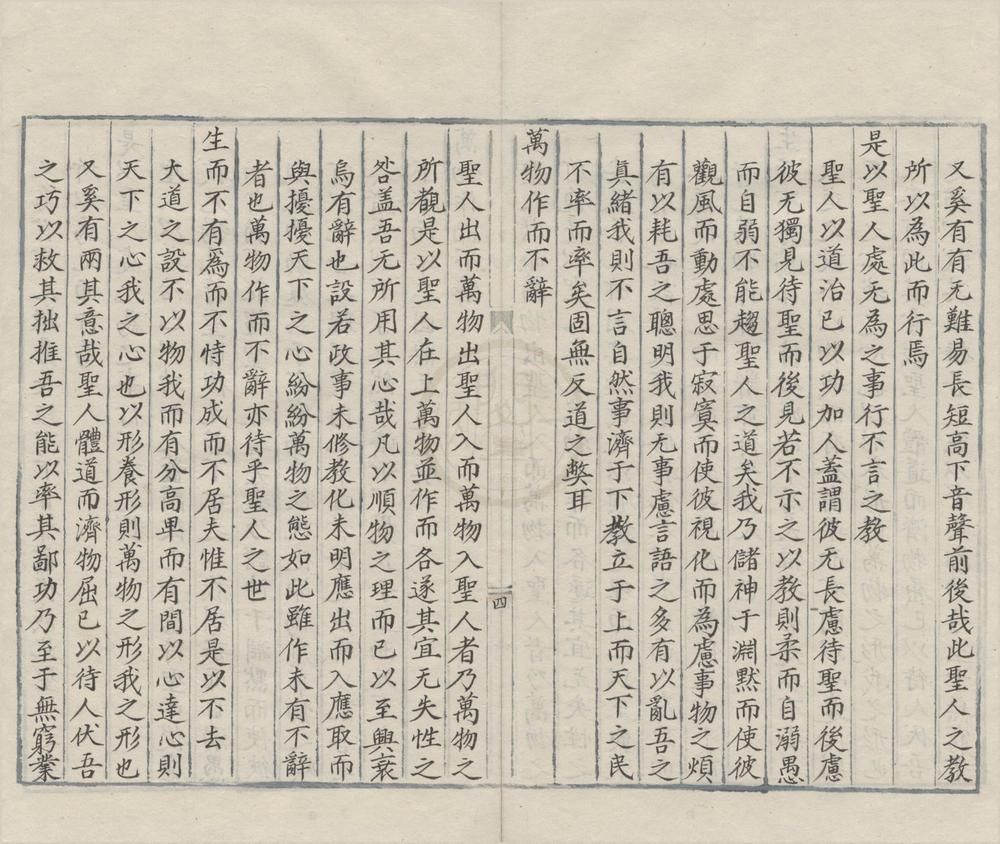 又奚有有无難易長短高下音聲前後哉此聖人之教
所以為此而行焉
是以聖人處无為之事行不言之教
聖人以道治己以功加人蓋謂彼无長慮待聖而後慮
彼无獨見待聖而後見若不示之以教則柔而自溺愚
而自弱不能趨聖人之道矣我乃儲神于淵默而使彼
觀風而動處思于寂寞而使彼視化而為慮事物之煩
有以耗吾之聰明我則无事慮言語之多有以亂吾之
真緒我則不言自然事濟于下教立于上而天下之民
不率而率矣固無反道之獘耳
萬物作而不辭
聖人出而萬物出聖人入而萬物入聖人者乃萬物之
所觀是以聖人在上萬物並作而各遂其宜无失性之
咎盖吾无所用其心哉凡以順物之理而已以至興衰
烏有辭也設若政事未修教化未明應出而入應取而
與擾擾天下之心紛紛萬物之態如此雖作未有不辭
者也萬物作而不辭亦待乎聖人之世
生而不有為而不恃功成而不居夫惟不居是以不去
大道之設不以物我而有分高卑而有間以心達心則
天下之心我之心也以形養形則萬物之形我之形也
又奚有兩其意哉聖人體道而濟物屈已以待人伏吾
之巧以救其拙推吾之能以率其鄙功乃至于無窮業
四